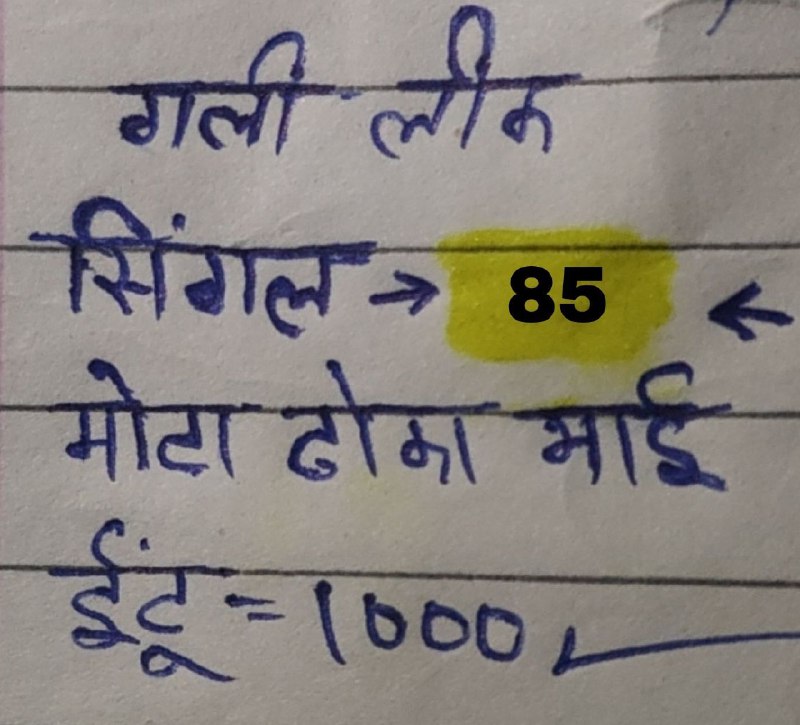 गली लीक
सिंगल → 85 ←
मोटा ठोका भाई
ईंटू = 1000